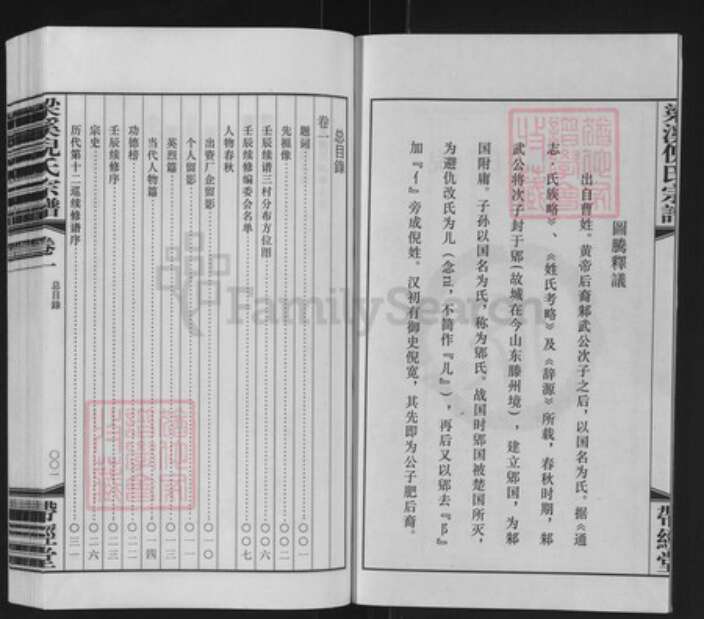 梁溪倪氏宗譜
圖騰釋議
出自曹姓。黄帝后裔邾武公次子之后，以国名为氏。据《通
志·氏族略》、《姓氏考略》及《辞源》所载，春秋时期，邾
武公将次子封于郳（故城在今山东滕州境），建立郳国，为邾
国附庸。子孙以国名为氏，称为郳氏。战国时郳国被楚国所灭，
为避仇改氏为儿（念ní，不简作『儿』），再后又以郳去『阝』
加『亻』旁成倪姓。汉初有御史倪宽，其先即为公子肥后裔。
帶經堂
总目錄
卷一
题词 〇〇一
先祖像 〇〇二
壬辰续谱三村分布方位图 〇〇六
壬辰续修编委会名单 〇〇七
人物春秋
出资厂企留影 〇一〇
个人留影 〇一一
英烈篇 〇一三
当代人物篇 〇一四
功德榜 〇二二
壬辰续修序 〇二三
宗史 〇二六
历代第十二巡续修谱序 〇三一
梁溪倪氏宗譜
卷一
总目錄
〇〇一
帶經堂
FamilySearch